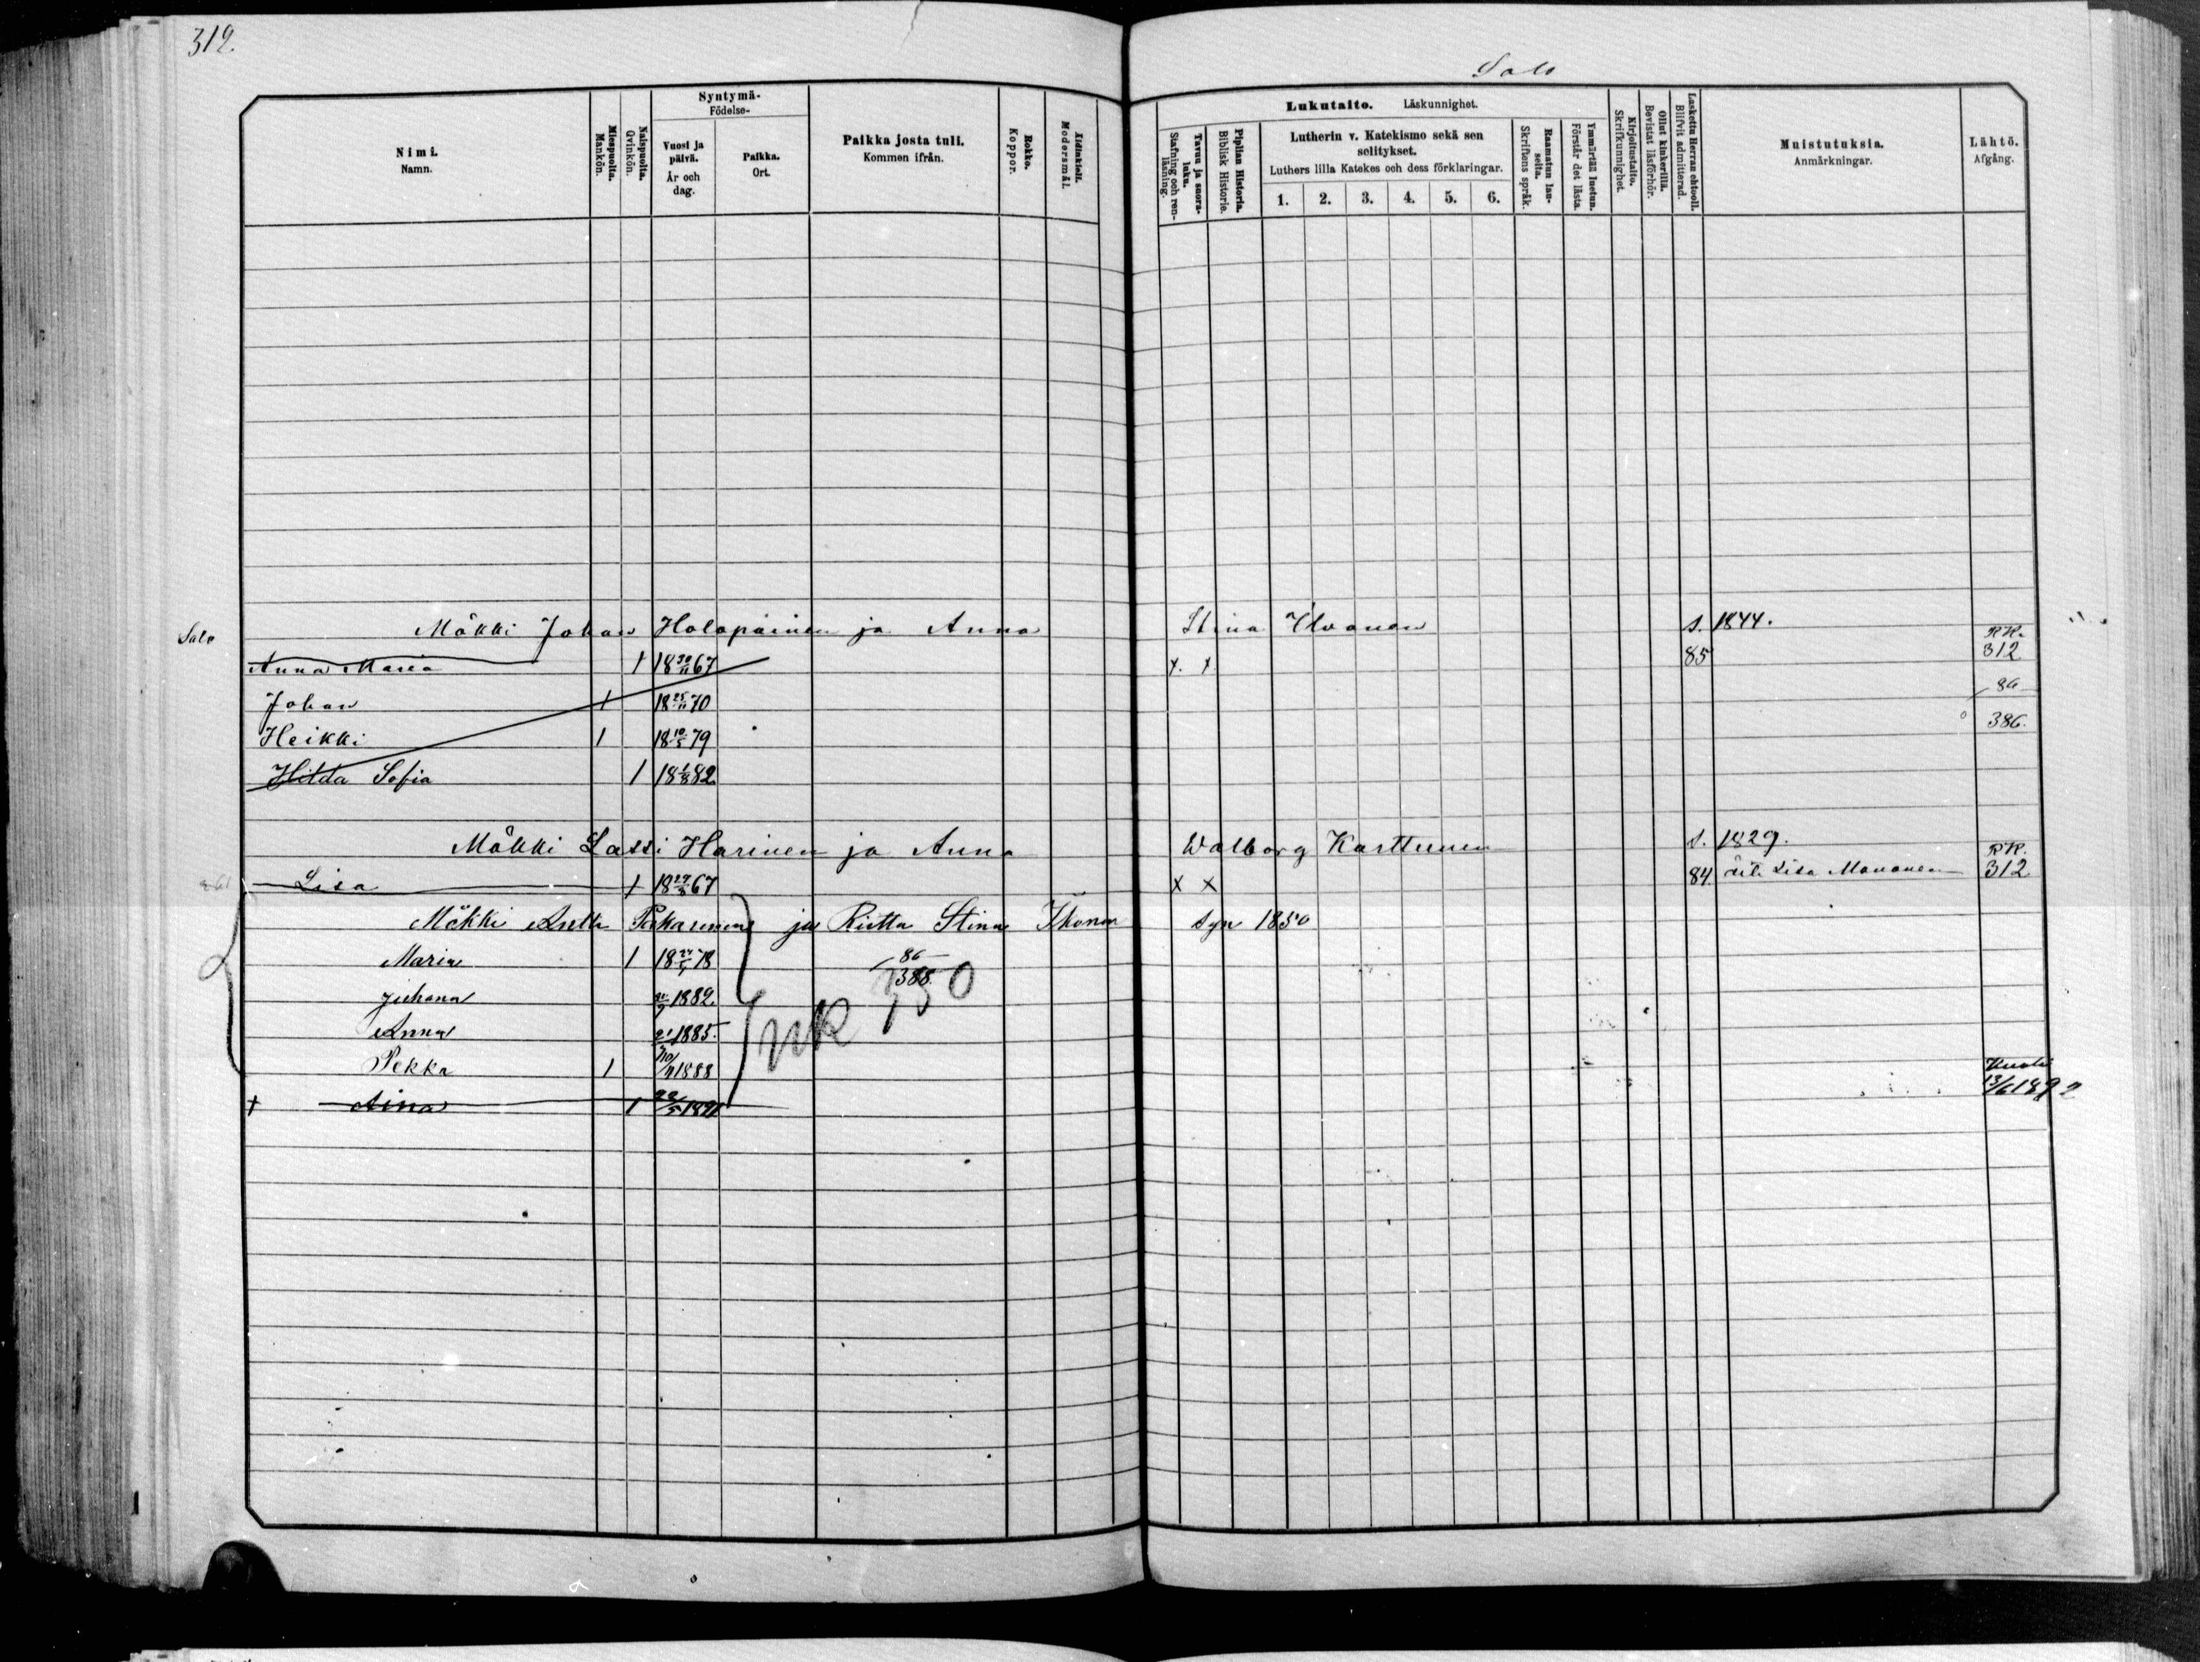 312.
Salo
Syntymä-
Födelse-
Nimi.
Namn.
Miespuolia.
Mankön.
Naispuolia.
Qvinkön.
Vuosi ja päivä.
År och dag.
Paikka.
Ort.
Paikka josta tuli.
Kommen ifrån.
Rokko.
Koppor.
Äidinkieli.
Modersmål.
Lukutaito. Läskunnighet.
Tavuu ja suora- luku.
Stafning och ren- läsning.
Piplian Historia.
Biblisk Historie.
Lutherin v. Katekismo sekä sen selitykset.
Luthers lilla Katekes och dess förklaringar.
1. 2. 3. 4. 5. 6.
Raamatun lau- seita.
Skriftens språk.
Ymmärtää luetun.
Förstår det lästa.
Kirjoitustaito.
Skrifkunnighet.
Ollut kinkerillä.
Bevistat läsförhör.
Laskettu Herran ehtooll.
Blifvit admitterad.
Muistutuksia.
Anmärkningar.
Lähtö.
Afgång.
Salo Mökki Johan Holopainen ja Anna Stina s. 1844.
Anna Maria 1 18 30/11 67 x. x 85 RK. 312
Johan 1 18 25/11 70 86
Heikki 1 18 10/5 79 386.
Hilda Sofia 1 18 1/8 82
Mökki Lassi Harinen ja Anna Walborg Karttunen s. 1829.
Lisa 1 18 27/8 67 x x 84. Lisa Mononen RK. 312
Mökki Antti Pakarinen ja Riitta Stina Ikonen syn 1850
Maria 1 18 78 86
388 350
Juhana 1882.
RK
Anna 1885.
Pekka 1 1888
+ Aina 1 22/5 1891 Kuoli 13/6 1892